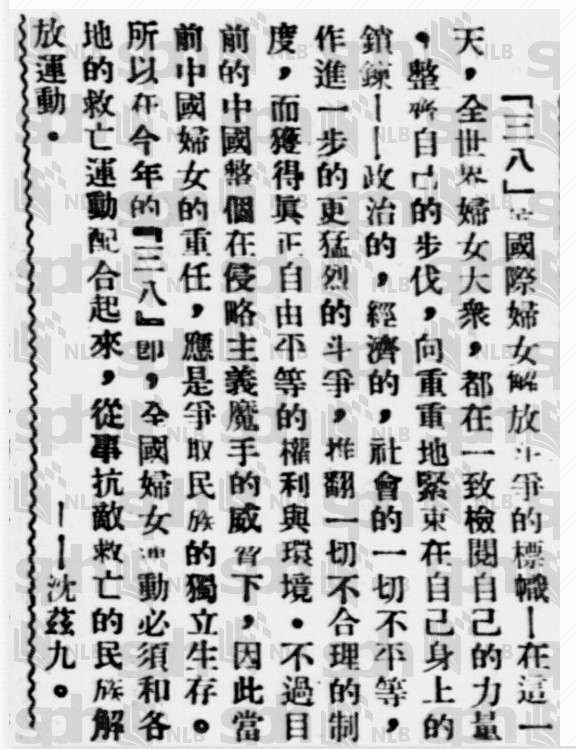 『三八』是國際婦女解放斗爭的標幟—在這一
天，全世界婦女大衆，都在一致檢閱自己的力量
，整齊自己的步伐，向重重地緊束在自己身上的
鎖鍊——政治的，經濟的，社會的一切不平等，
作進一步的更猛烈的斗爭，推翻一切不合理的制
度，而獲得眞正自由平等的權利與環境。不過目
前的中國整個在侵略主義魔手的威脅下，因此當
前中國婦女的重任，應是爭取民族的獨立生存。
所以在今年的『三八』節，全國婦女運動必須和各
地的救亡運動配合起來，從事抗敵救亡的民族解
放運動。
——沈茲九。